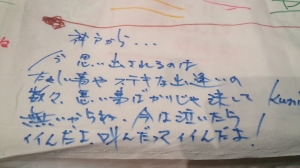 神戸から...
今思い出されるのは
たのしい事やステキな出逢いの
数々、思い事ばかりじゃ決して
無いからね。今は泣いたら
イイんだよ、叫んだってイイんだよ!
Kuni